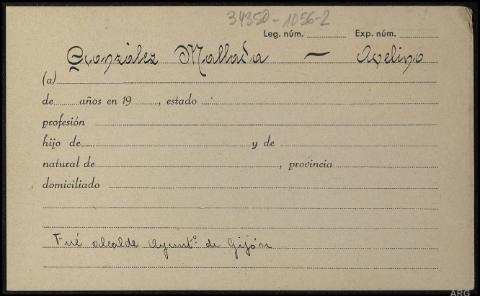 34350-1056-2
Leg. núm. Exp. núm.
González Mallada — Avelino
(a)
de años en 19 , estado
profesión
hijo de y de
natural de , provincia
domiciliado
Fué alcalde Ayuntº de Gijón
ARG